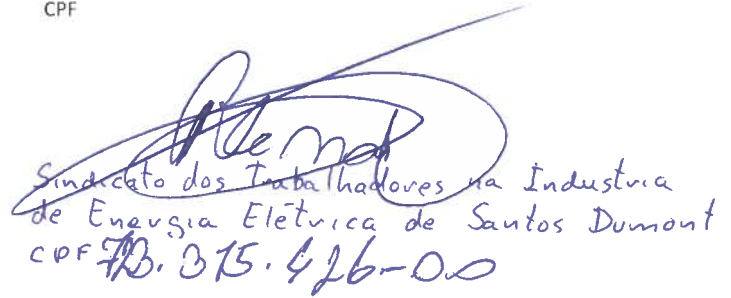 CPF
Sindicato dos Trabalhadores na Industria
de Energia Elétrica de Santos Dumont
CPF